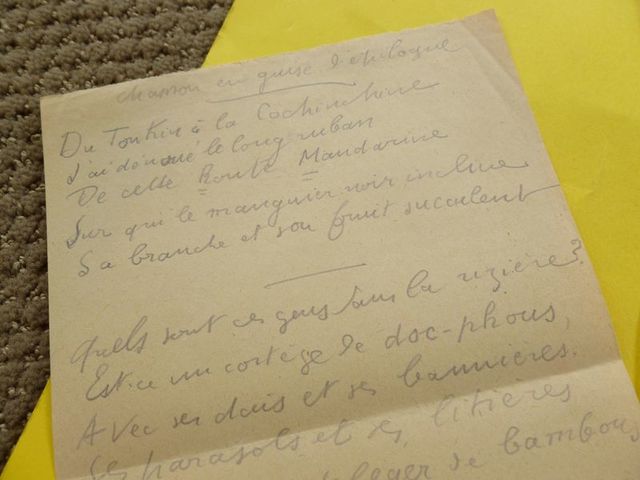 Chanson en guise d'épilogue
Du Tonkin à la Cochinchine
J'ai dénoué le long ruban
De cette Route Mandarine
Sur qui le manguier noir incline
Sa branche et son fruit succulent
Quels sont ces gens dans la rizière?
Est-ce un cortège de doc-phous,
Avec ses dais et ses bannières.
Ses parasols et ses litières
léger de bambous